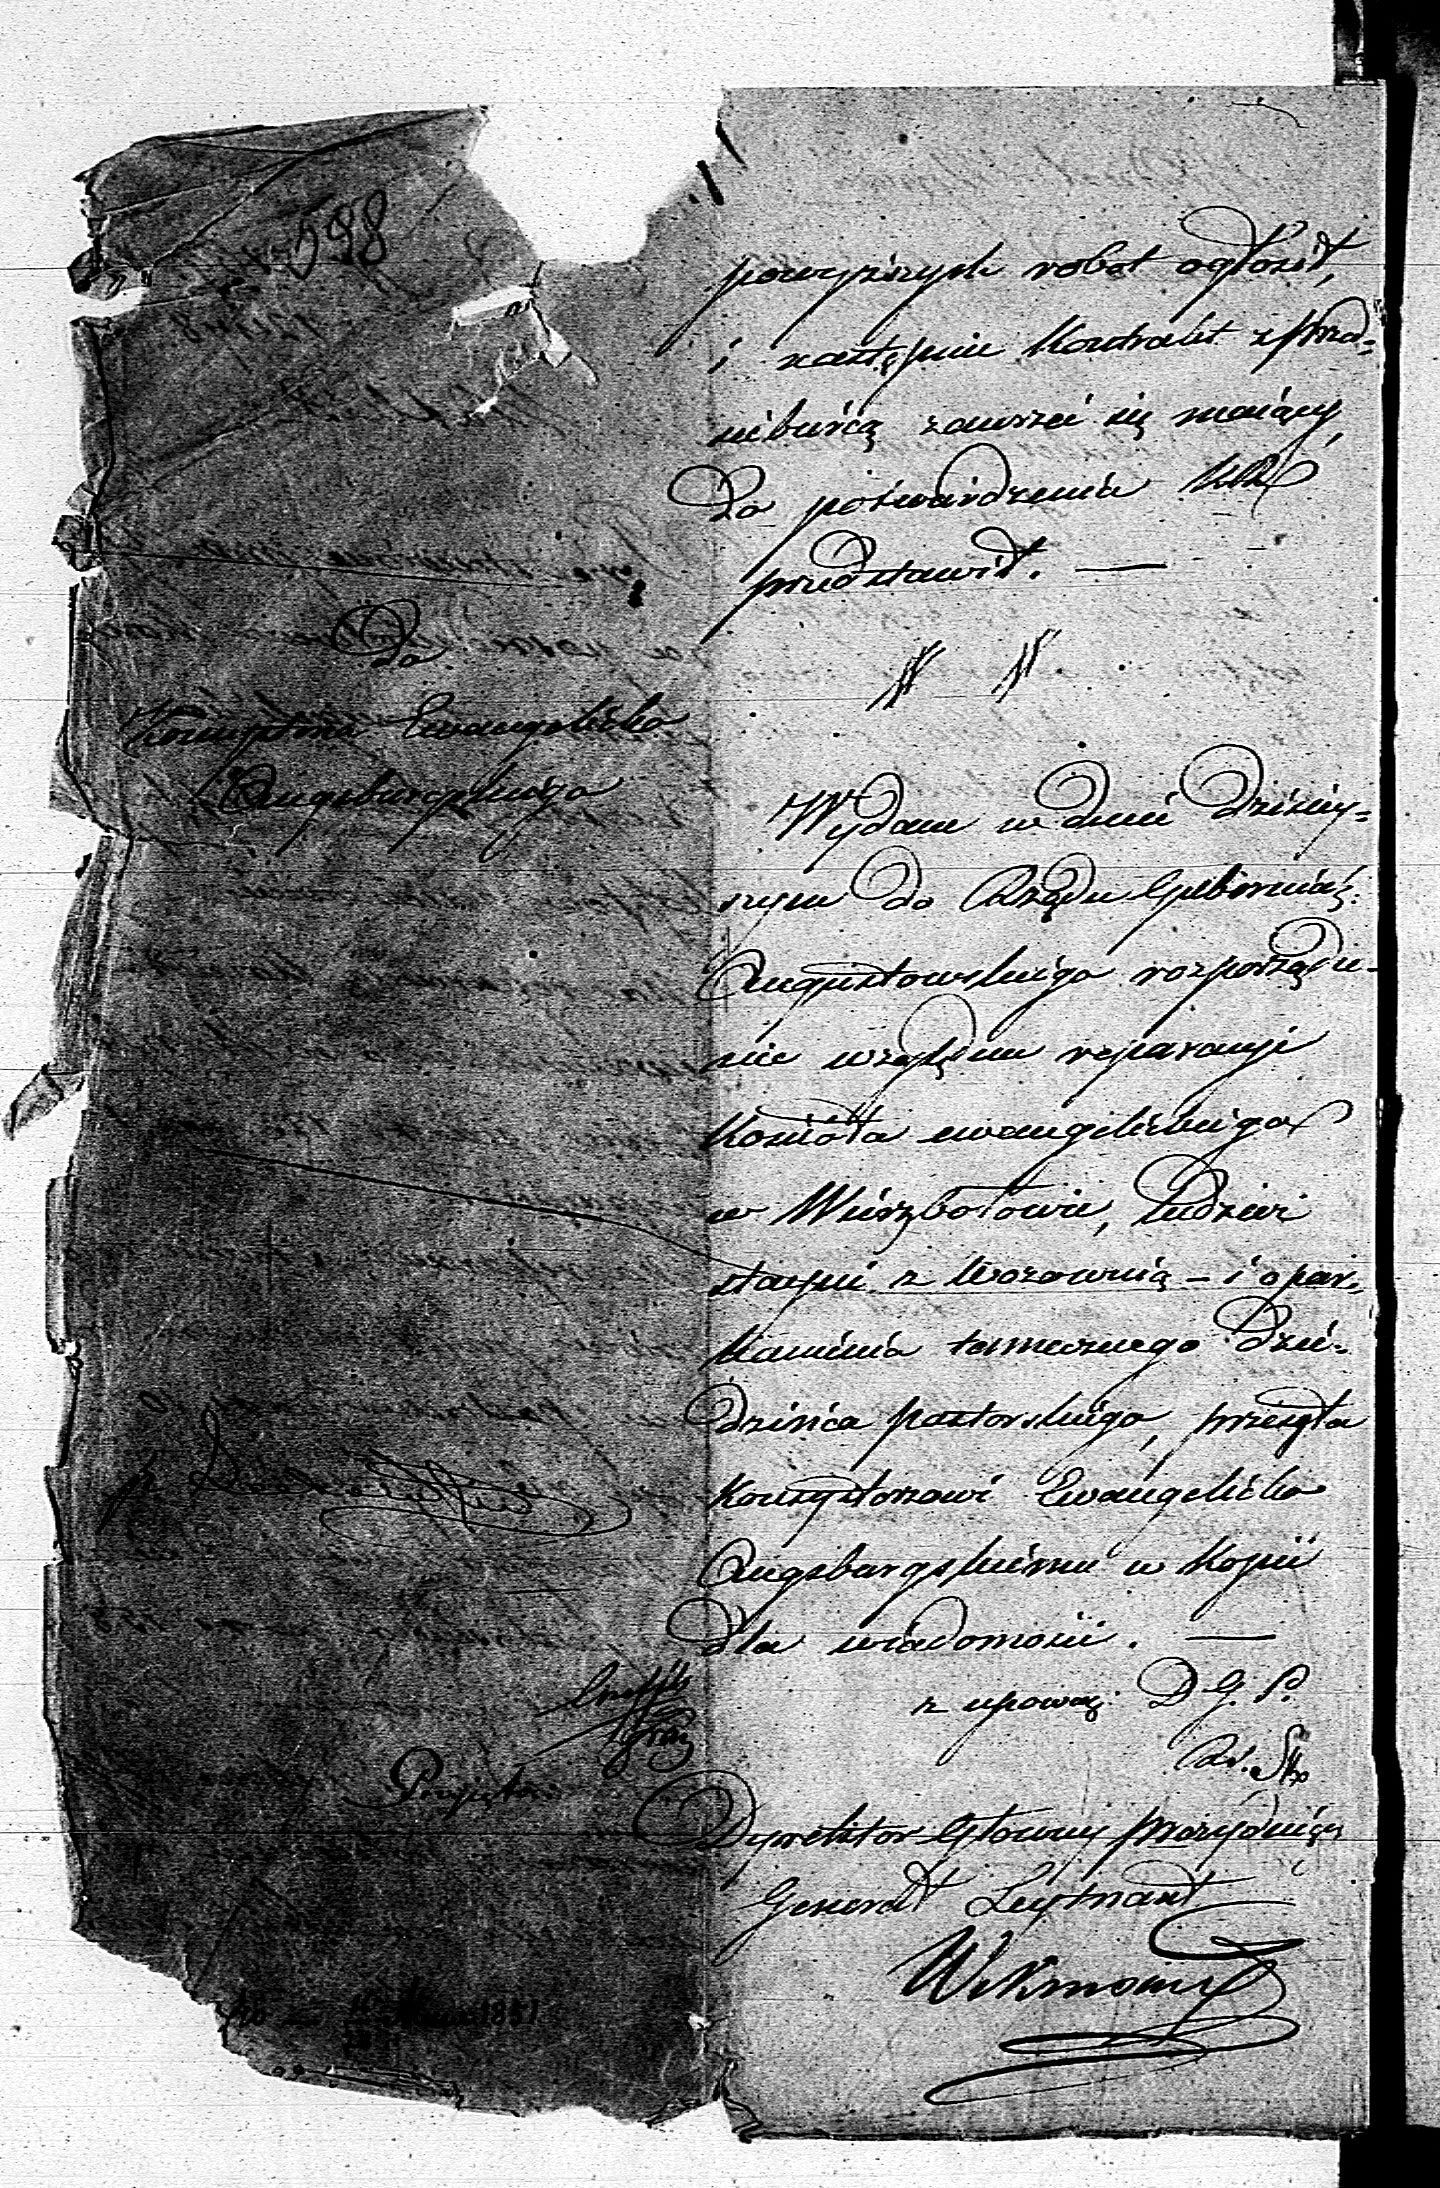 598
Do
Konsystorza Ewangelicko
Augsburgskiego
powyższych robot ogłosił,
i następnie Kontrakt z przed-
siębiercą zawrzeć się maiący
do potwierdzenia KR
przedstawił. —
Wydane w dniu dzisiey-
szym do Rządu Gubernial:
Augustowskiego rozporządze-
nie względem reparacyi
Kościoła ewangelickiego
w Wierzbołowie, tudzież
stayni z wozownią – i opar-
kanienia tamecznego dzie-
dzińca pastorskiego, przesyła
Konsystorzowi Ewangelicko
Augsburgskiemu w Kopii
dla wiadomości. —
z upoważ: D. G. P.
R. St.
Dyrektor Główny Prezyduiący
Generał Leytnant
1851